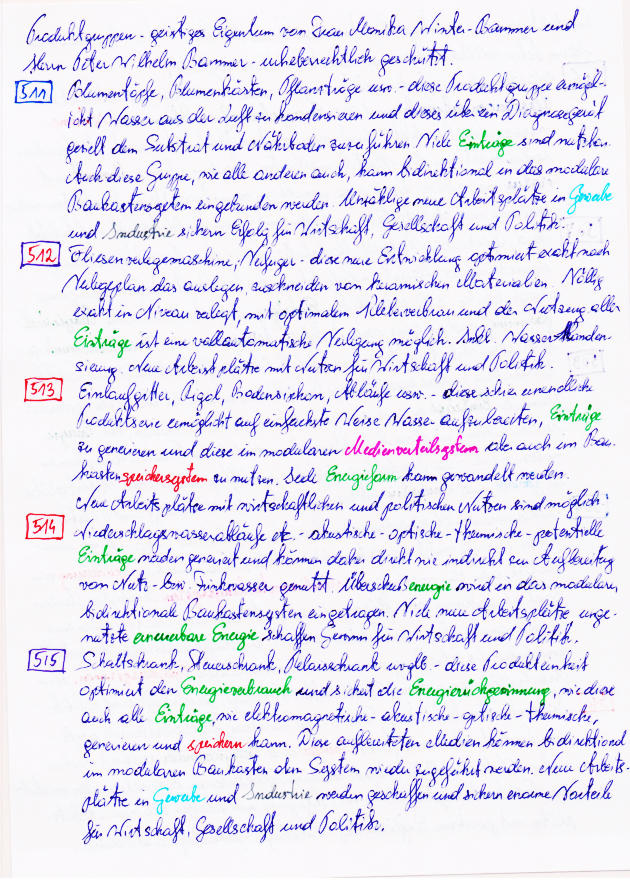 Produktgruppen - geistiges Eigentum von Frau Monika Winter-Bammer und
Herrn Peter Wilhelm Bammer - urheberrechtlich geschützt.
511 Blumentöpfe, Blumenkästen, Pflanztröge usw. - diese Produktgruppe ermögli-
icht Wasser aus der Luft zu kondensieren und dieses über ein Diagnosegerät
gezielt dem Substrat und Nährboden zuzuführen. Viele Einträge sind nutzbar.
Auch diese Gruppe, wie alle anderen auch, kann bidirektional in das modulare
Baukastensystem eingebunden werden. Unzählige neue Arbeitsplätze in Gewerbe
und Industrie sichern Erfolg für Wirtschaft, Gesellschaft und Politik.
512 Fliesenverlegemaschine, Verfuger - diese neue Entwicklung optimiert exakt nach
Verlegeplan das auslegen, zuschneiden von keramischen Materialien. Völlig
exakt in Niveau verlegt, mit optimalem Kleberverbrau und der Nutzung aller
Einträge ist eine vollautomatische Verlegung möglich. Inkl. Wasserkonden-
sierung. Neue Arbeitsplätze mit Nutzen für Wirtschaft und Politik.
513 Einlaufgitter, Rigol, Bodensinken, Abläufe usw. - diese schier unendliche
Produktserie ermöglicht auf einfachste Weise Wasser aufzubereiten, Einträge
zu generieren und diese im modularen Medienverteilsystem aber auch im Bau-
kastenspeichersystem zu nutzen. Jede Energieform kann gewandelt werden.
Neue Arbeitsplätze mit wirtschaftlichen und politischen Nutzen sind möglich.
514 Niederschlagswasserabläufe etc. - akustische - optische - thermische - potentielle
Einträge werden generiert und können daher direkt wie indirekt zur Aufbereitung
von Nutz- bzw. Trinkwasser genutzt. Überschußenergie wird in das modulare,
bidirektionale Baukastensystem eingetragen. Viele neue Arbeitsplätze, unge-
nutzte erneuerbare Energie schaffen Gewinn für Wirtschaft und Politik.
515 Schaltschrank, Steuerschrank, Relaisschrank uvglb. - diese Produkteinheit
optimiert den Energieverbrauch und sichert die Energierückgewinnung, wie diese
auch alle Einträge, wie elektromagnetische - akustische - optische - thermische,
generieren und speichern kann. Diese aufbereiteten Medien können bidirektional
im modularen Baukasten dem System wieder zugeführt werden. Neue Arbeits-
plätze in Gewerbe und Industrie werden geschaffen und sichern enorme Vorteile
für Wirtschaft, Gesellschaft und Politik.